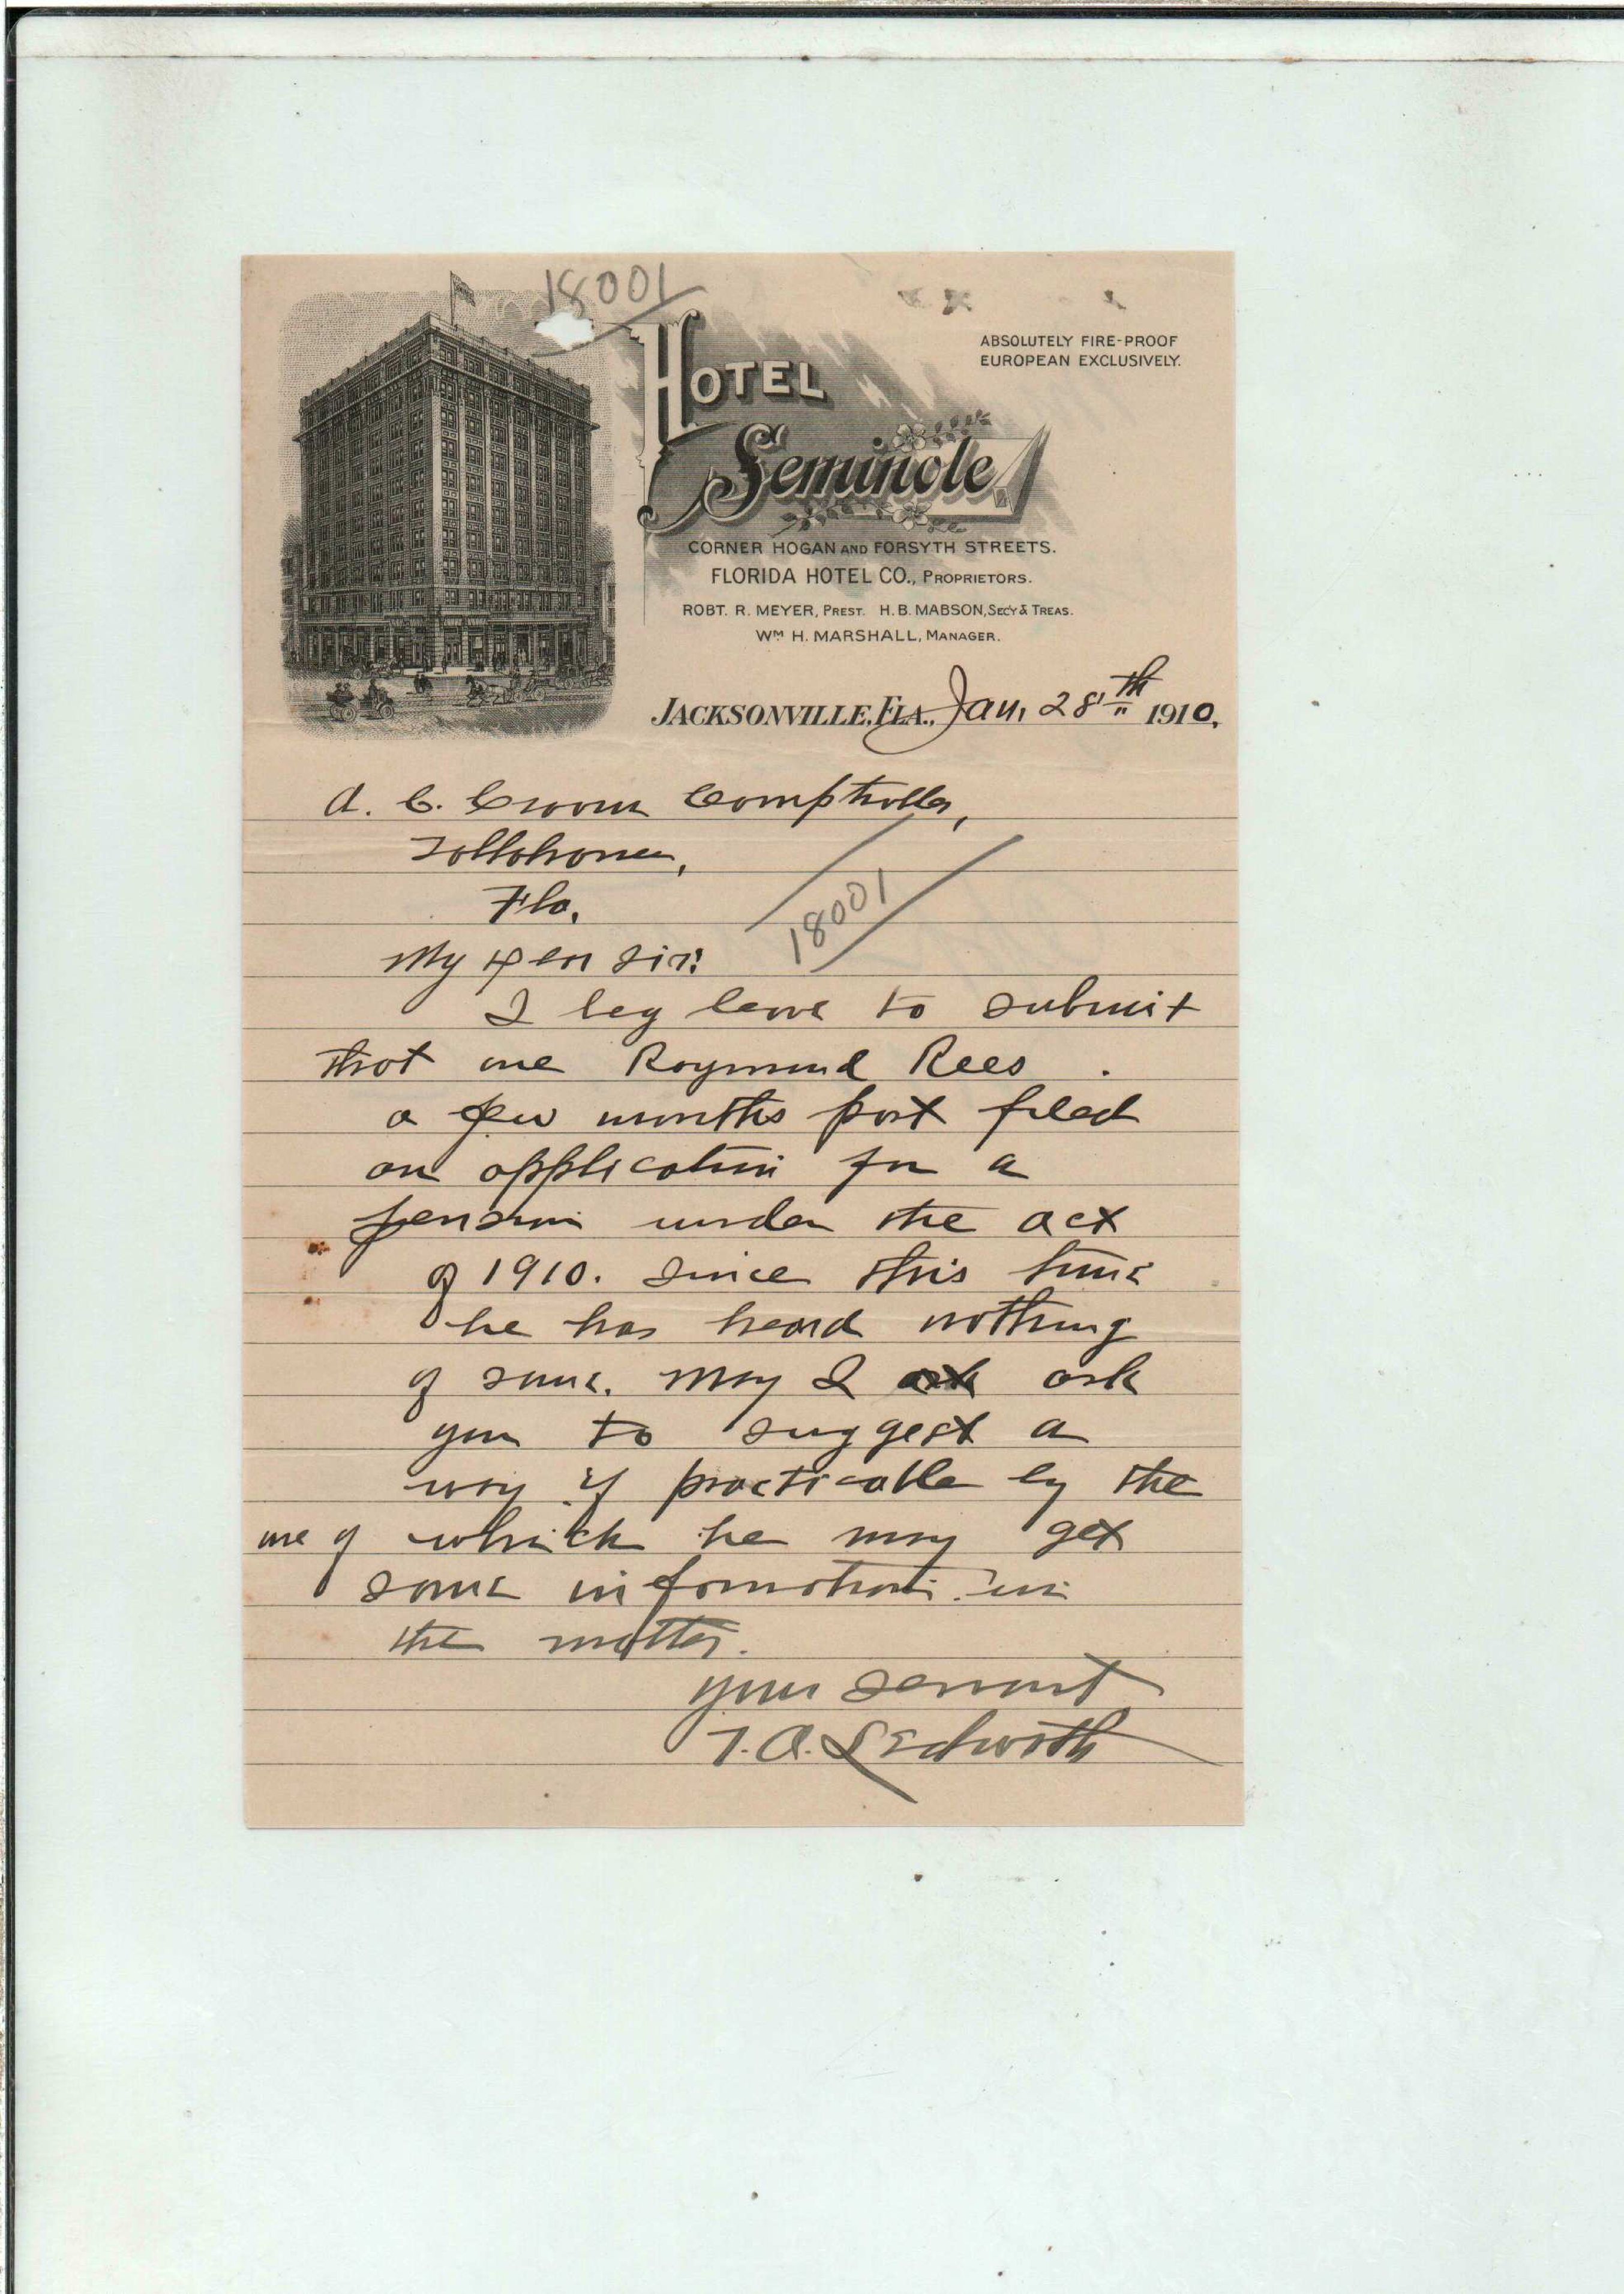 18001
ABSOLUTELY FIRE-PROOF
EUROPEAN EXCLUSIVELY.
HOTEL
Seminole
CORNER HOGAN AND FORSYTH STREETS.
FLORIDA HOTEL CO., PROPRIETORS.
ROBT. R. MEYER, PREST. H. B. MABSON, SECY & TREAS.
WM H. MARSHALL, MANAGER.
JACKSONVILLE, FLA., Jan, 28th 1910,
A. C. Croom Comptroller,
Tallahassee,
Fla.
18001
My Dear Sir:
I beg leave to submit
that one Raymond Rees
a few months past filed
an application for a
pension under the act
of 1910. Since this time
he has heard nothing
of same. May I ask ask
you to suggest a
way if practicable by the
use of which he may get
some information in
the matter.
Your Servant
T. A. Ledwith